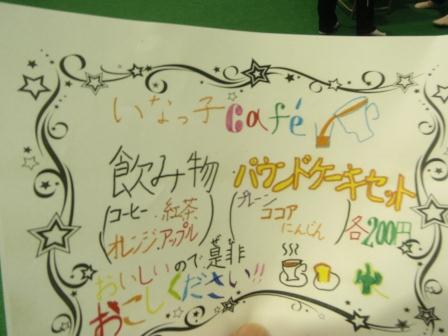 いなっ子Café
飲み物 パウンドケーキセット
(コーヒー・紅茶 (プレーン
オレンジ・アップル) ココア
にんじん) 各200円
おいしいので是非
おこしください!!